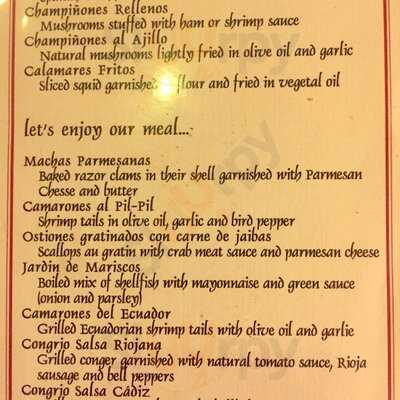 Champiñones Rellenos
Mushrooms stuffed with ham or shrimp sauce
Champiñones al Ajillo
Natural mushrooms lightly fried in olive oil and garlic
Calamares Fritos
Sliced squid garnished flour and fried in vegetal oil
let's enjoy our meal...
Machas Parmesanas
Baked razor clams in their shell garnished with Parmesan
Chesse and butter
Camarones al Pil-Pil
Shrimp tails in olive oil, garlic and bird pepper
Ostiones gratinados con carne de jaibas
Scallops au gratin with crab meat sauce and parmesan cheese
Jardin de Mariscos
Boiled mix of shellfish with mayonnaise and green sauce
(onion and parsley)
Camarones del Ecuador
Grilled Ecuadorian shrimp tails with olive oil and garlic
Congrio Salsa Riojana
Grilled conger garnished with natural tomato sauce, Rioja
sausage and bell peppers
Congrio Salsa Cádiz